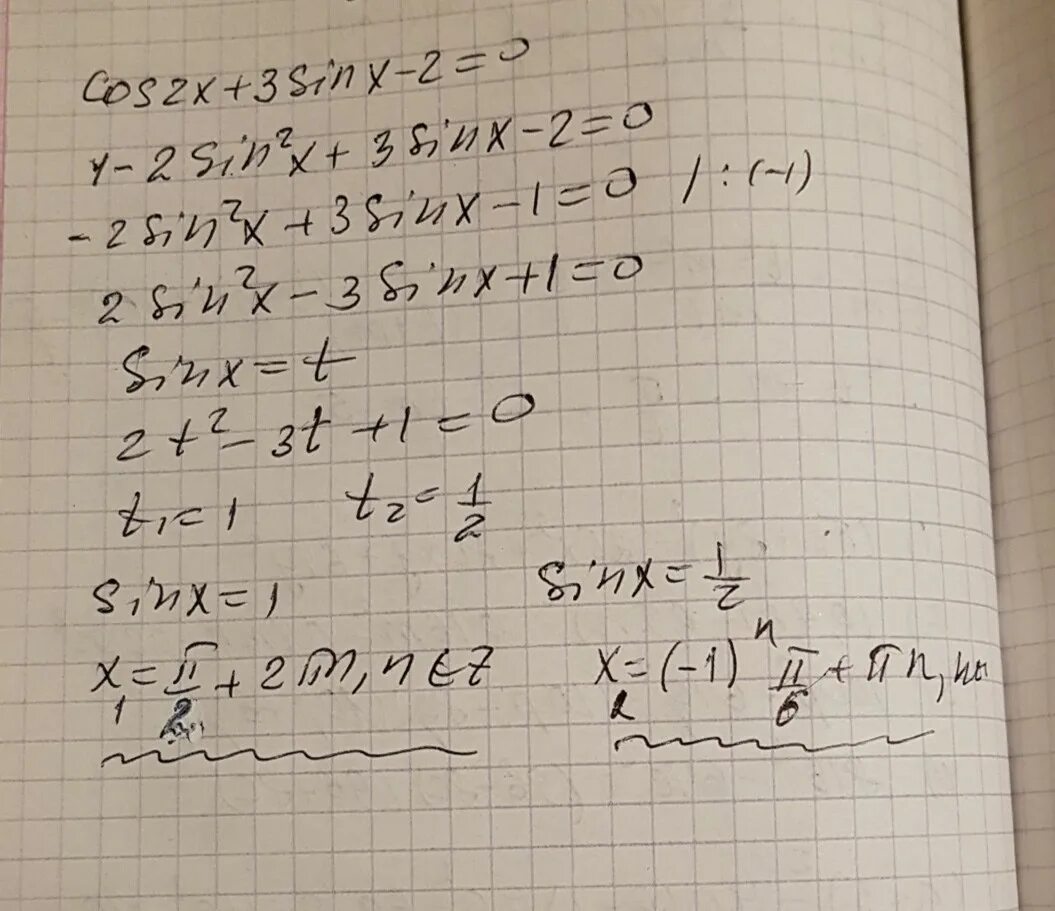 cos2x+3sinx-2=0
1-2sin²x+3sinx-2=0
-2sin²x+3sinx-1=0 /:(-1)
2sin²x-3sinx+1=0
sinx=t
2t²-3t+1=0
t₁=1 t₂=1/2
sinx=1 sinx=1/2
x₁=π/2+2πn, n∈Z x₂=(-1)ⁿ π/6+πn, n